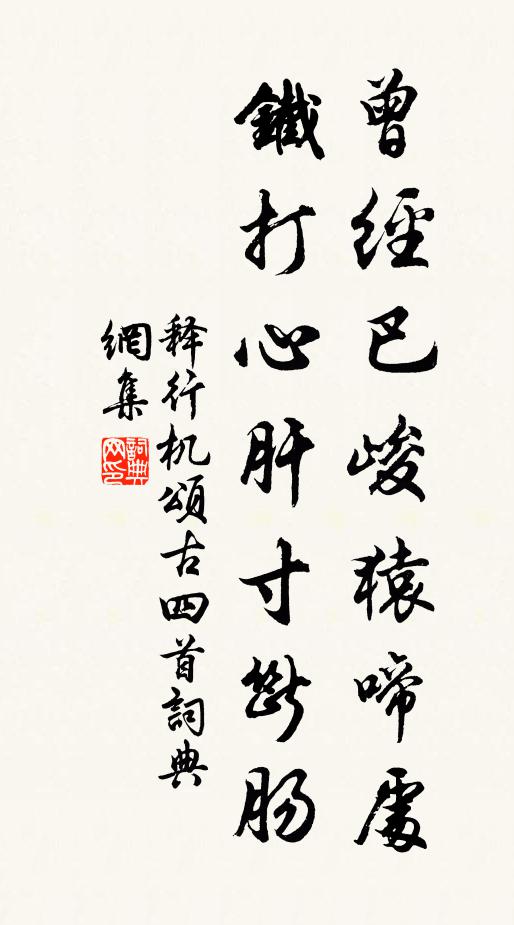 曾經巴峻猿啼處
鐵打心肝寸斷肠
释行机頌古四首詞典
網集
詞典網印